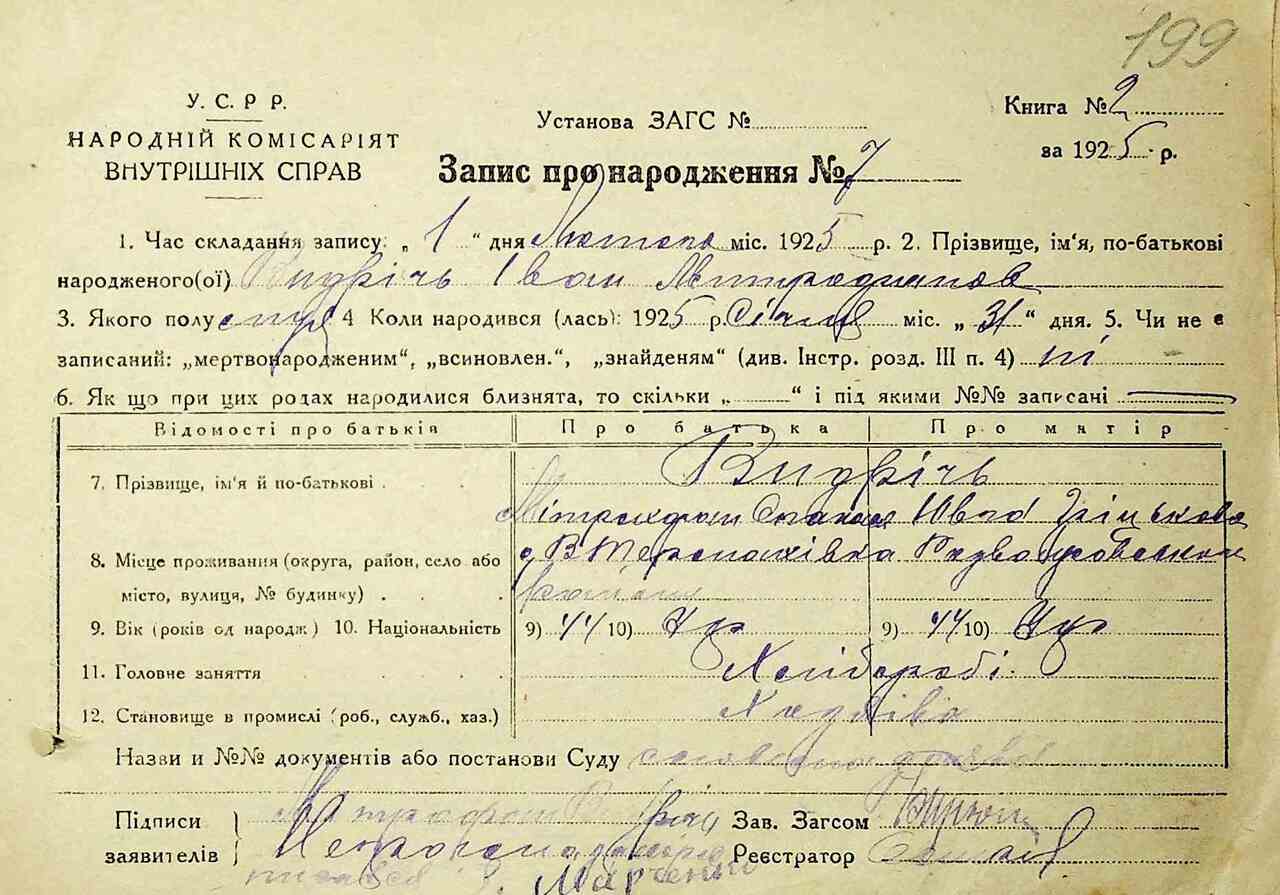 199
У. С. Р Р.
НАРОДНІЙ КОМІСАРІЯТ
ВНУТРІШНІХ СПРАВ
Установа ЗАГС №
Книга № 2
за 1925 р.
Запис про народження № 7
1. Час складання запису: „ 1 “ дня Лютого міс. 1925 р. 2. Прізвище, ім'я, по-батькові
народженого(ої) Видрічь Іван Митрофанов
3. Якого полу 4 Коли народився (лась): 1925 р. Січня міс. „ 31 “ дня. 5. Чи не є
записаний: „мертвонародженим“, „всиновлен.“, „знайденям“ (див. Інстр. розд. III п. 4) ні
6. Як що при цих родах народилися близнята, то скільки „ “ і під якими №№ записані
Відомості про батьків Про батька Про матір
7. Прізвище, ім'я й по-батькові Видрічь
Мітрохфан
8. Місце проживання (округа, район, село або
місто, вулиця, № будинку) району
9. Вік (років од народж) 10. Національність 9) 44 10) Укр 9) 44 10) Укр
11. Головне заняття Хліборобі
12. Становище в промислі (роб., служб., хаз.) Хазяіва
Назви и №№ документів або постанови Суду
Підписи
заявителів
Зав. Загсом
Реєстратор
Марченко